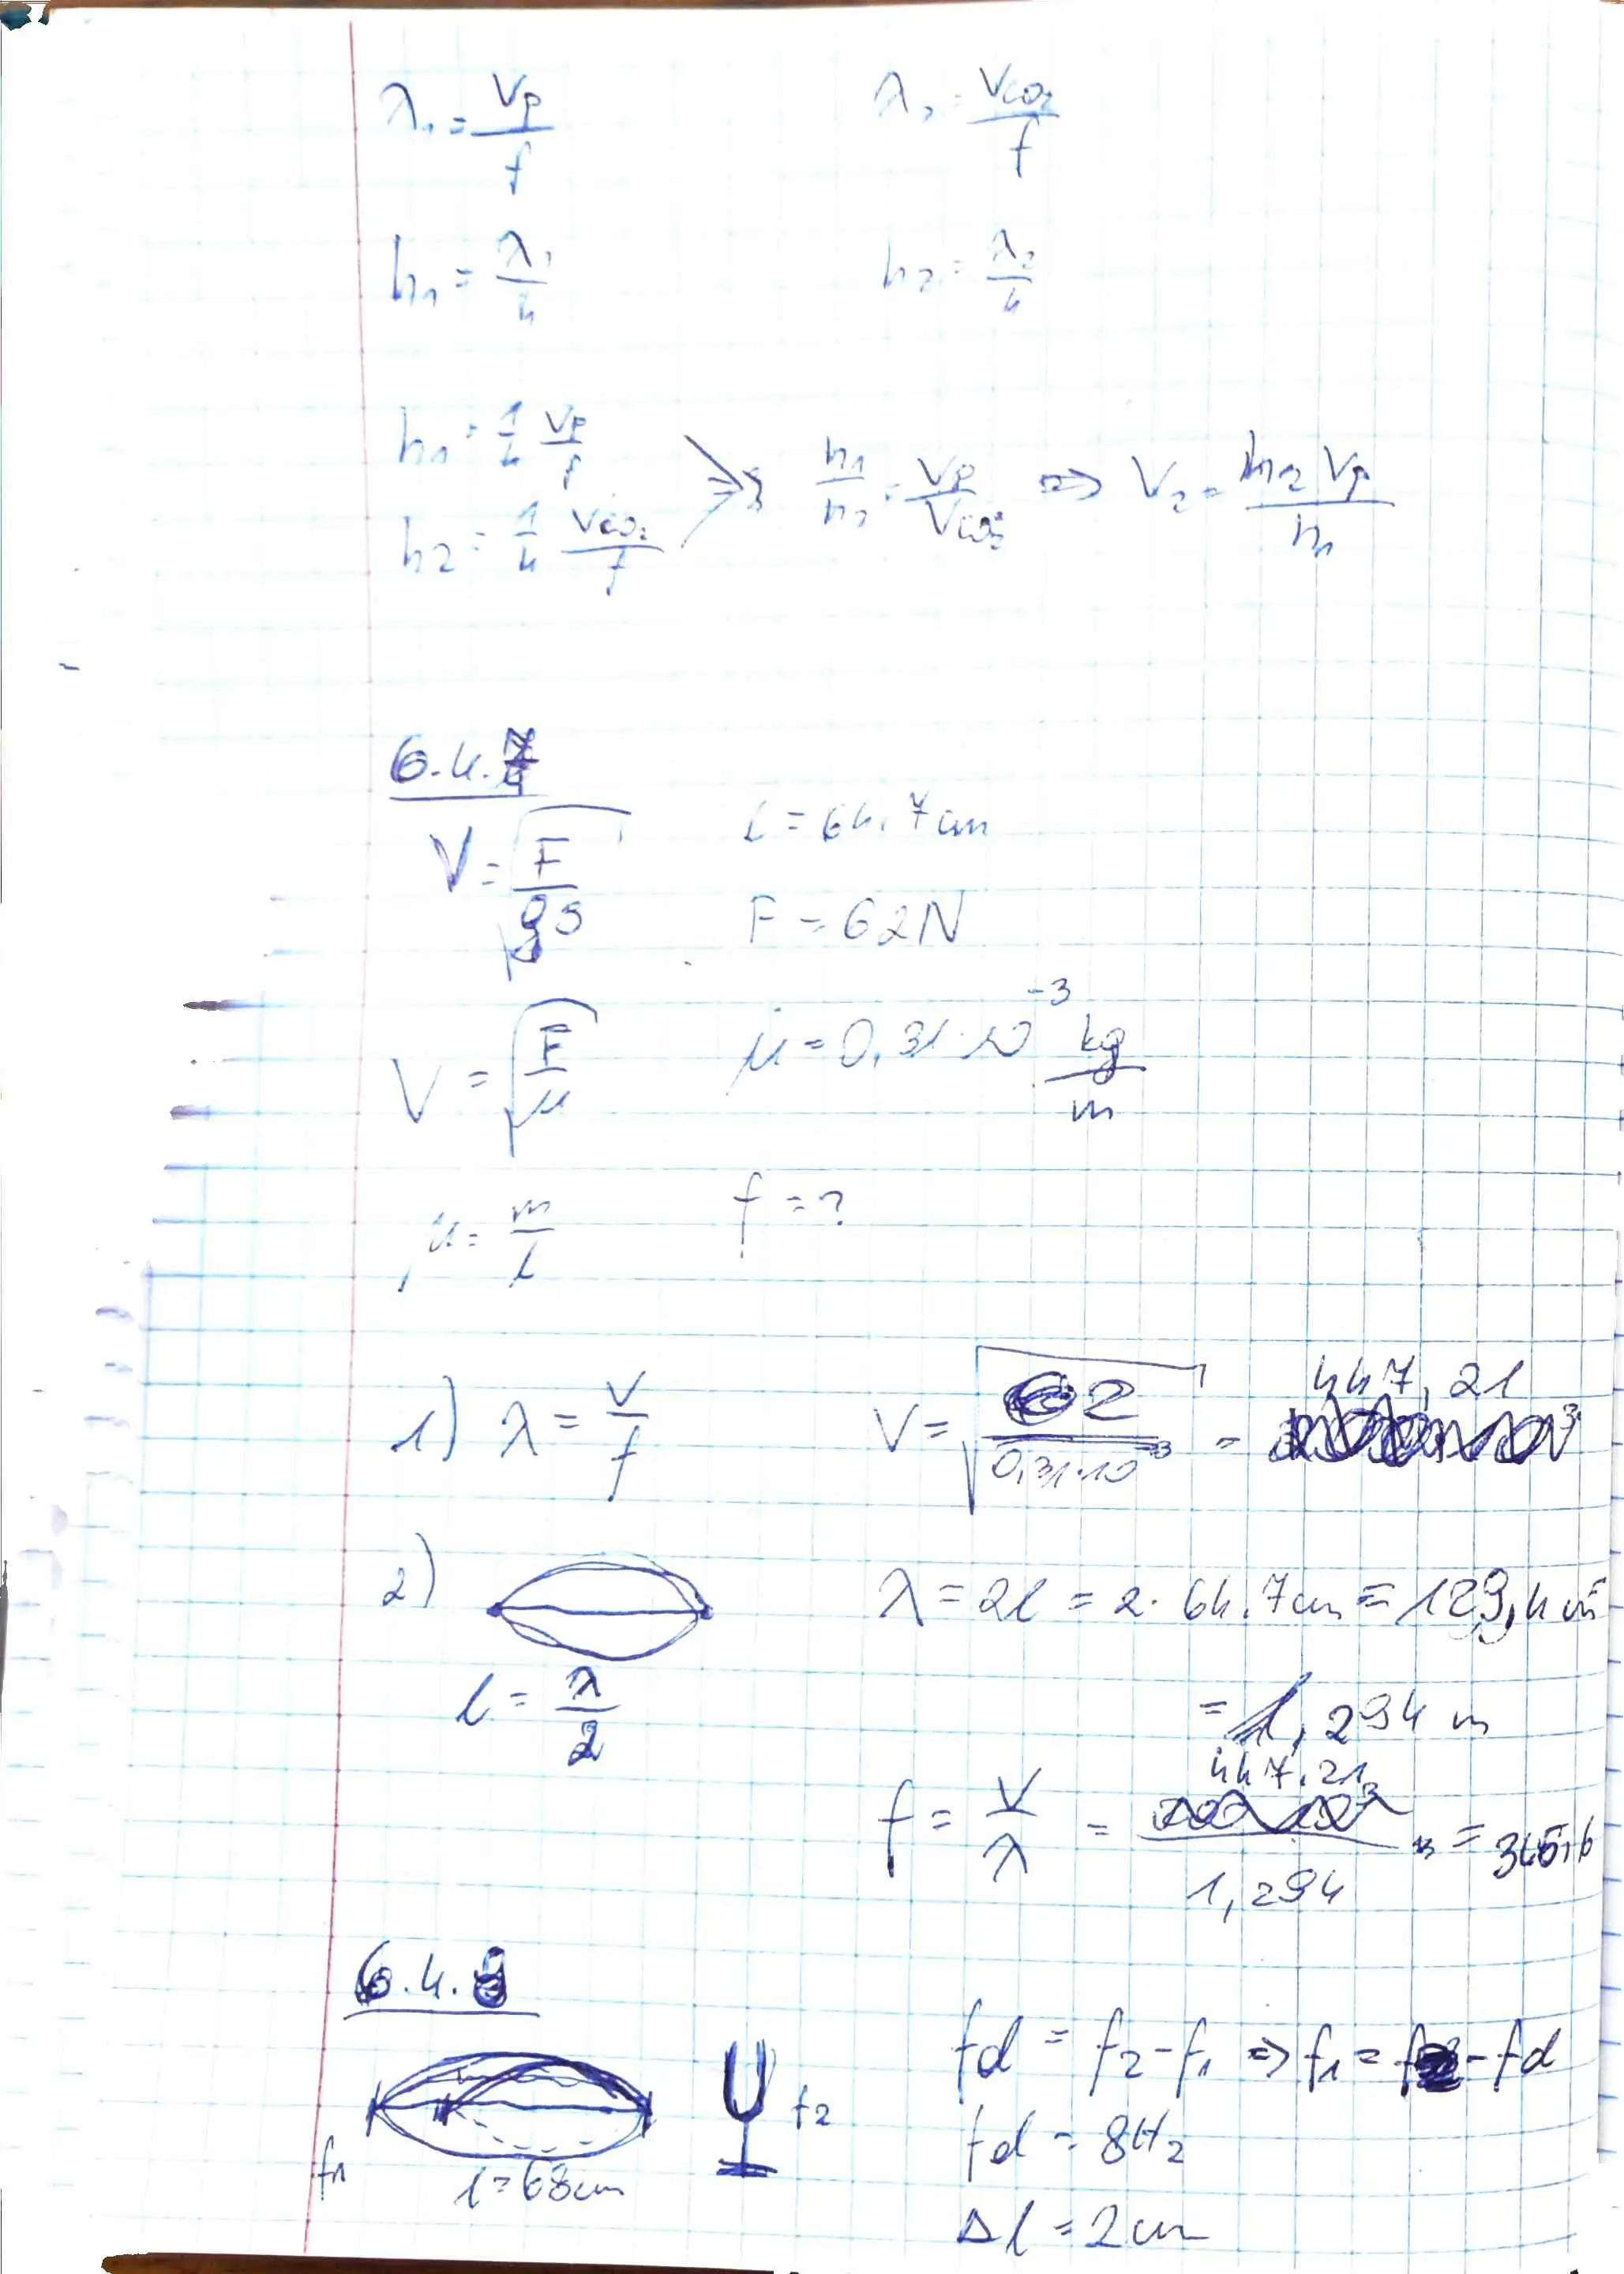 λ₁ = Vp / f    λ₂ = Vco₂ / f
h₁ = λ₁ / 4    h₂ = λ₂ / 4
h₁ = 1/4 Vp / f
h₂ = 1/4 Vco₂ / f    ⇒ h₁ / h₂ = Vp / Vco₂ ⇒ V₂ = h₂ Vp / h₁
6.4.7
V = √(F / ρS)    l = 64.7 cm
F = 62 N
V = √(F / μ)    μ = 0,31·10⁻³ kg / m
μ = m / l    f = ?
1) λ = V / f    V = √(62 / 0,31·10⁻³) = 447,21
2)    λ = 2l = 2·64.7cm = 129,4 cm
l = λ / 2    = 1,294 m
f = V / λ = 447.21 / 1,294 = 345,6
6.4.8
fd = f₂ - f₁ ⇒ f₁ = f₂ - fd
f₂
fd = 8Hz
f₁    l = 68cm
Δl = 2cm